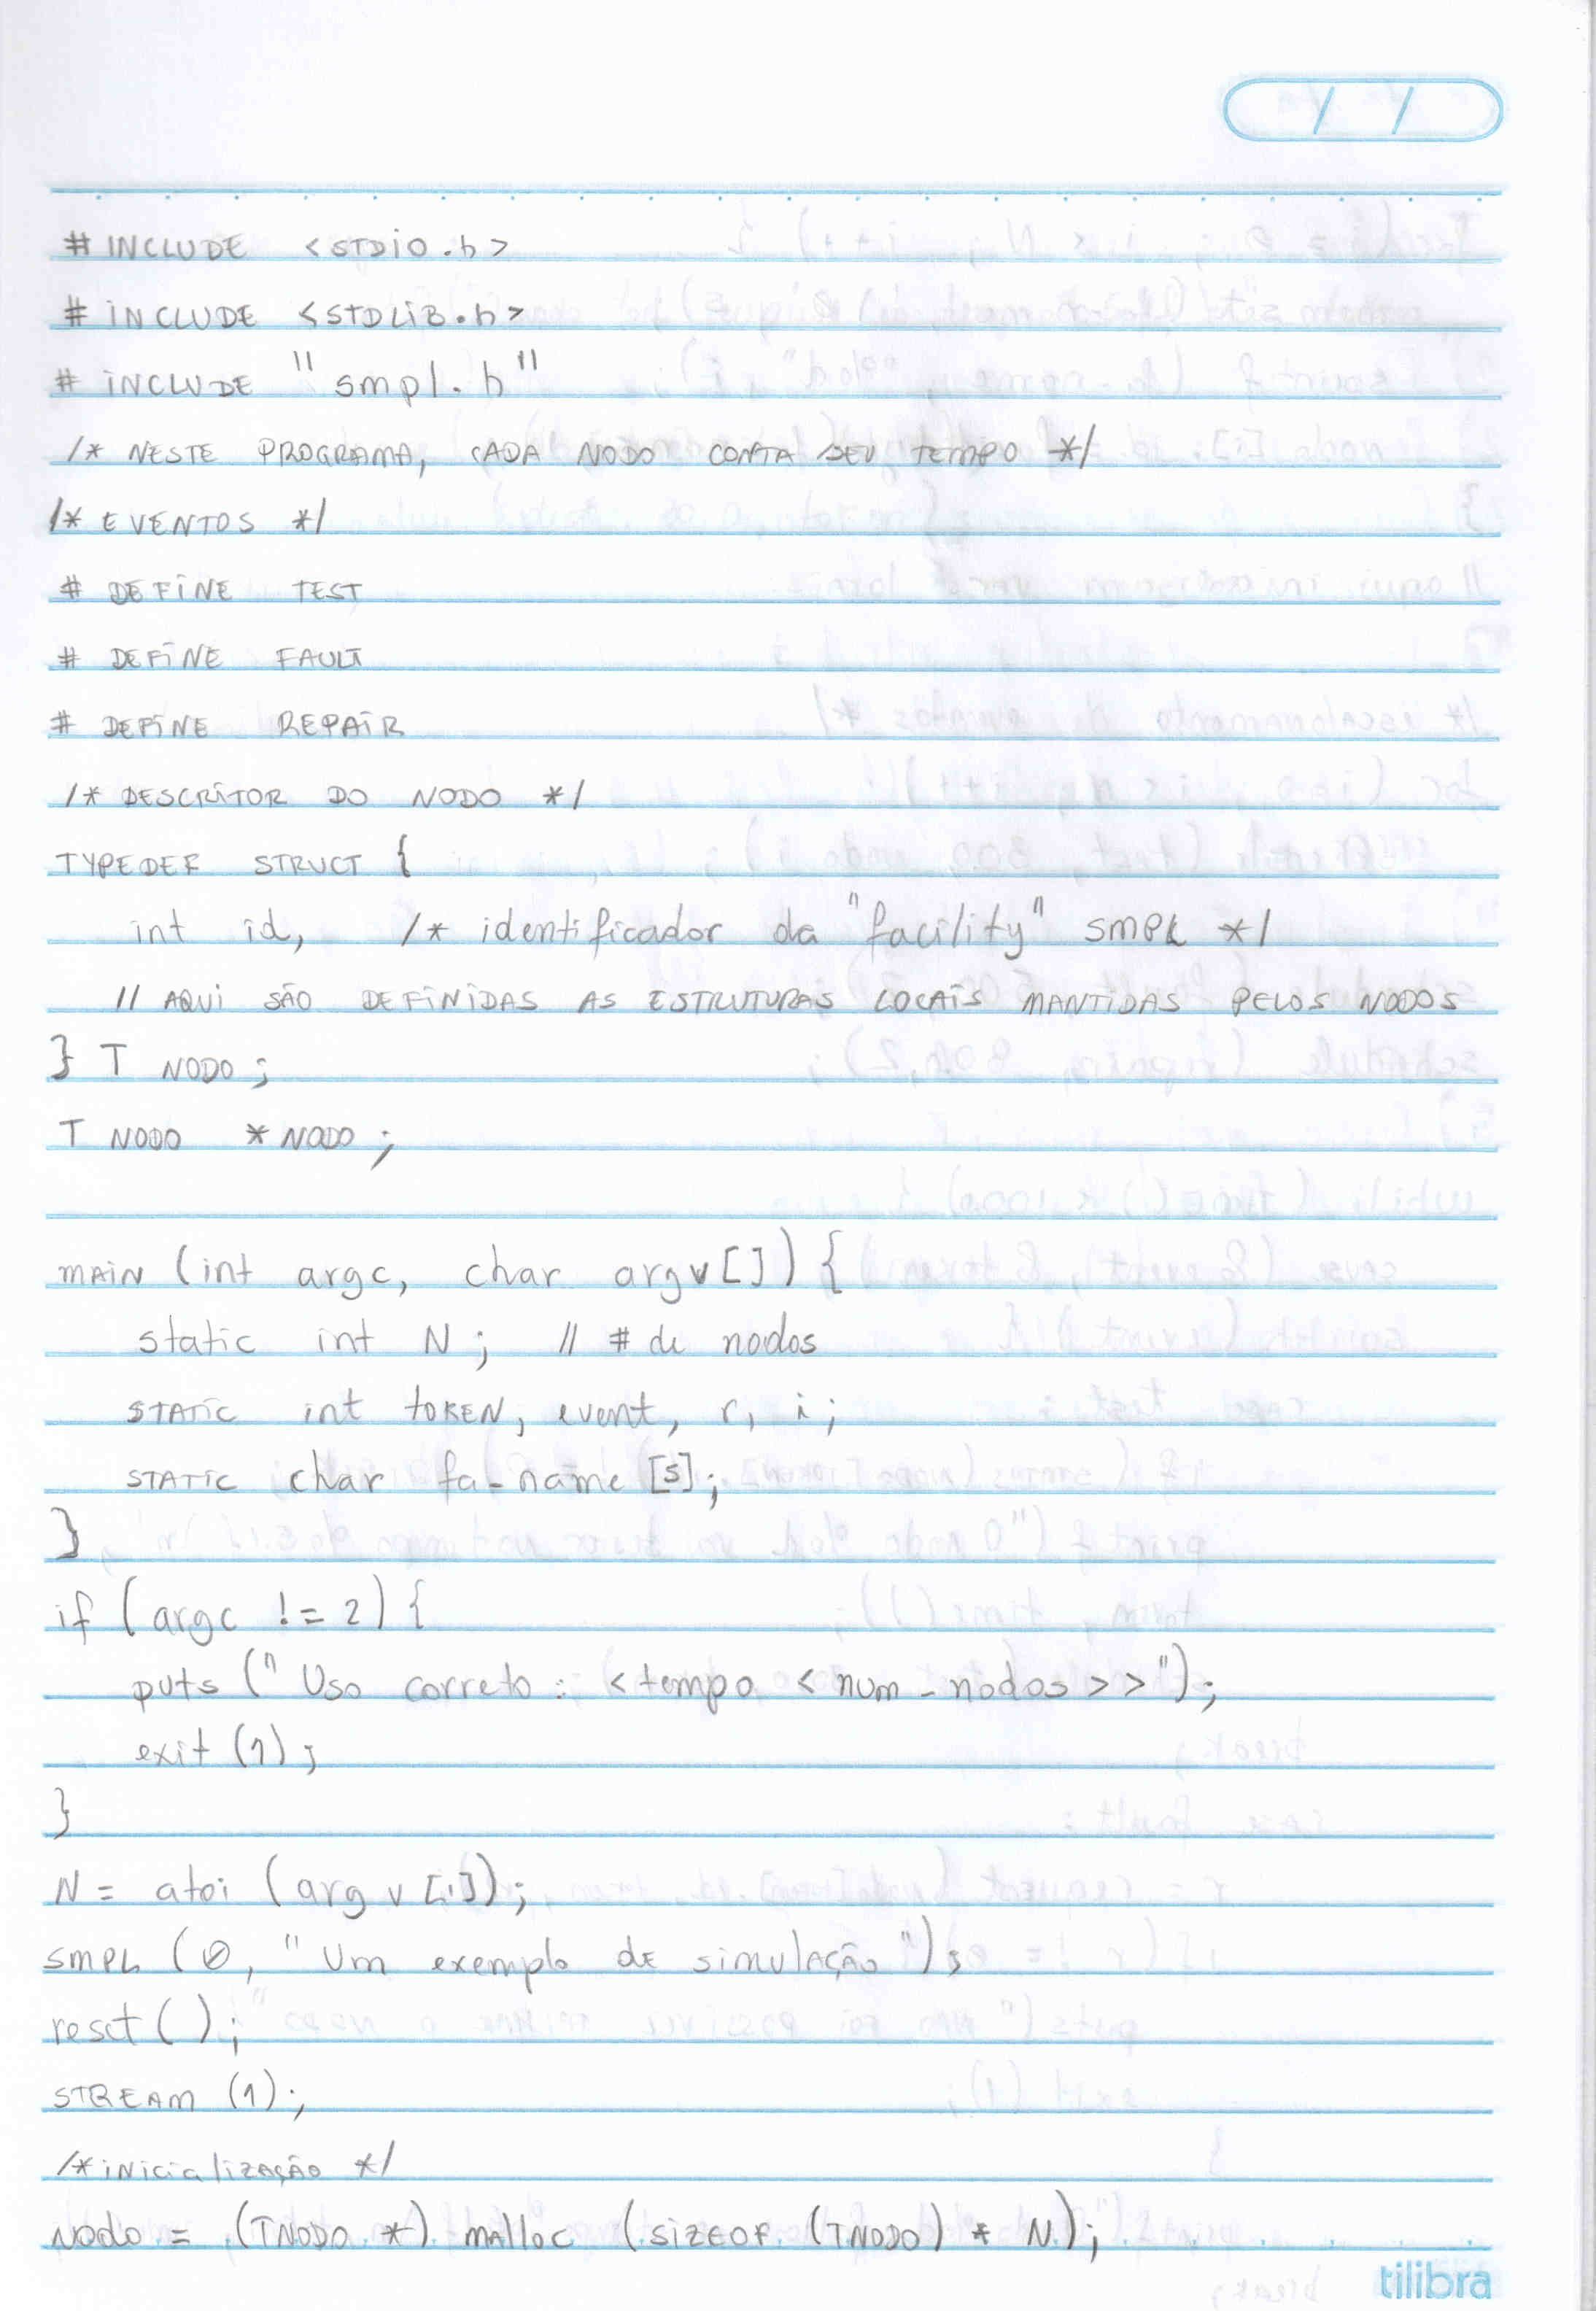 # INCLUDE <STDIO.h>
# INCLUDE <STDLIB.h>
# INCLUDE "smpl.h"
/* NESTE PROGRAMA, CADA NODO CONTA SEU TEMPO */
/* EVENTOS */
# DEFINE TEST
# DEFINE FAULT
# DEFINE REPAIR
/* DESCRITOR DO NODO */
TYPEDEF STRUCT {
int id, /* identificador da "facility" SMPL */
// AQUI SÃO DEFINIDAS AS ESTRUTURAS LOCAIS MANTIDAS PELOS NODOS
} T NODO;
T NODO *NODO;
MAIN (int argc, char argv[]) {
static int N; // # de nodos
STATIC int TOKEN, event, r, i;
STATIC char fa-name [5];
}
if (argc != 2) {
puts ("Uso correto: <tempo <num-nodos>>");
exit (1);
}
N = atoi (argv[1]);
SMPL (0, "Um exemplo de simulação");
reset();
STREAM (1);
/*inicialização */
NODO = (TNODO *) malloc (sizeof (TNODO) * N);
tilibra